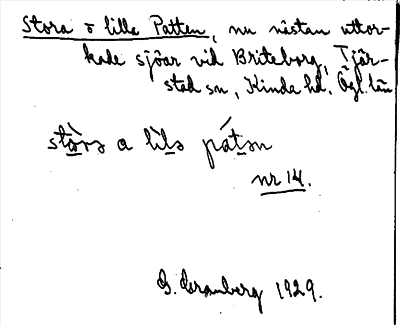 Stora o lilla Patten, nu nästan uttor-
kade sjöar vid Briteborg, Tjär-
stad sn, Kinda hd. Ögl. län
stòrə a lìlə pátən
nr 14.
G. Granberg 1929.